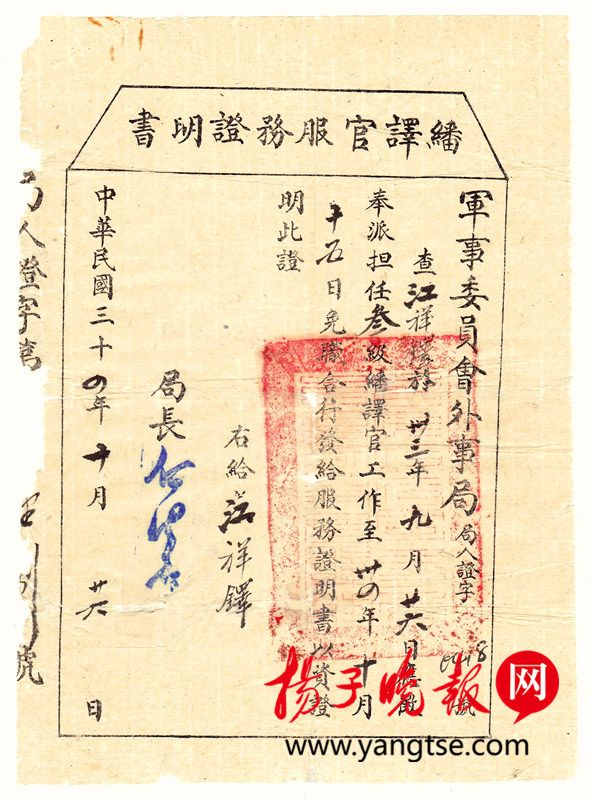 繙譯官服務證明書
軍事委員會外事局
局人證字 號
查江祥鐸於卅三年九月廿六日
奉派担任叁級繙譯官工作至卅四年十月
十五日免職合行發給服務證明書以資證
明此證
右給江祥鐸
局長
中華民國三十四年十月廿六日
局人證字第
號
揚子晚報网
www.yangtse.com